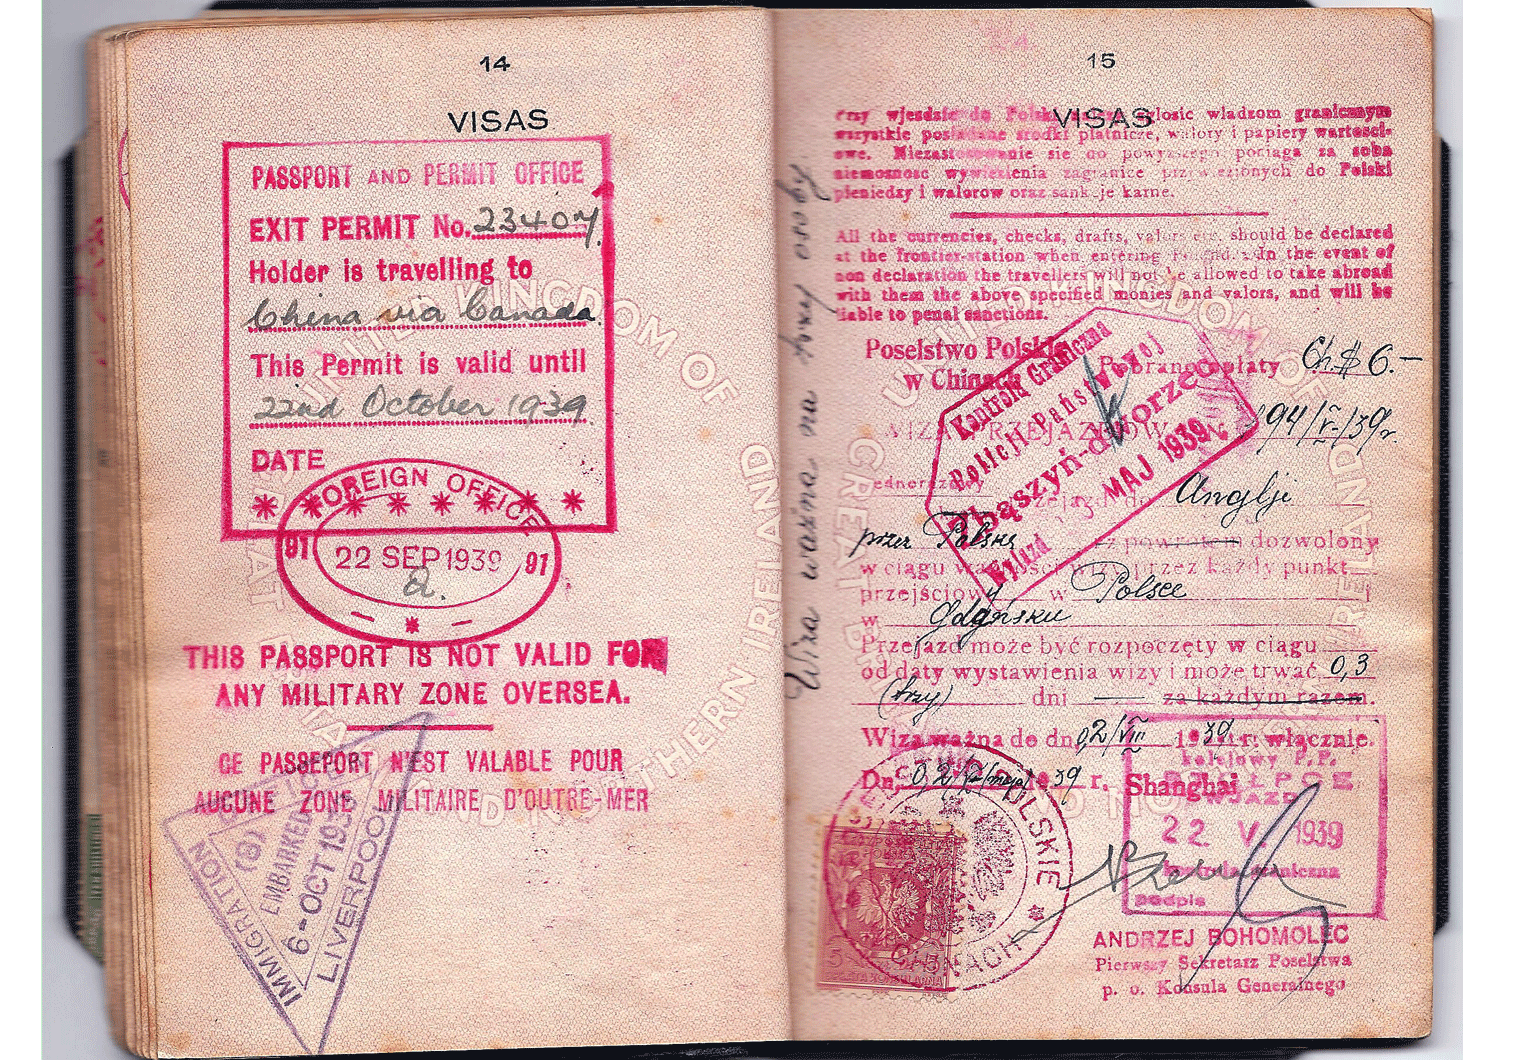 14
VISAS
PASSPORT AND PERMIT OFFICE
EXIT PERMIT No. 23407
Holder is travelling to
China via Canada
This Permit is valid until
22nd October 1939
DATE
FOREIGN OFFICE
91 22 SEP 1939 91
THIS PASSPORT IS NOT VALID FOR
ANY MILITARY ZONE OVERSEA.
CE PASSEPORT N'EST VALABLE POUR
AUCUNE ZONE MILITAIRE D'OUTRE-MER
IMMIGRATION
EMBARKED
6-OCT 193
LIVERPOOL
15
VISAS
Przy wjezdzie do Polski zglosic wladzom granicznym
wszystkie posiadane srodki platnicze, walory i papiery wartosci-
owe. Niezastosowanie sie do powyzszego pociaga za soba
niemoznosc wywiezienia zagranice przywiezionych do Polski
pieniedzy i walorow oraz sankcje karne.
All the currencies, checks, drafts, valors etc. should be declared
at the frontier-station when entering Poland. In the event of
non declaration the travellers will not be allowed to take abroad
with them the above specified monies and valors, and will be
liable to penal sanctions.
Poselstwo Polskie
w Chinach
Pobrano opłaty Ch.$ 6.—
194/V-/39r.
WIZA PRZEJAZDOWA
Jednorazowy przejazd do Anglji
przez Polskę z powrotem dozwolony
w ciągu ważności wizy przez każdy punkt
przejściowy w Polsce i
w Gdańsku
Przejazd może być rozpoczęty w ciągu
od daty wystawienia wizy i może trwać 0,3
(trzy) dni — za każdym razem.
Wiza ważna do dn. 02/VIII 1939 r. włącznie.
Dn. 02/V/(maja) 39 r. Shanghai
Wiza ważna na trzy osoby
Kontrola Graniczna
Policji Państwowej
Zbąszyń-dworzec
MAJ 1939
Wyjazd
kolejowy P.P.
WJAZD
22 V. 1939
kontrola graniczna
podpis
POLSKIE
CHINACH
ANDRZEJ BOHOMOLEC
Pierwszy Sekretarz Poselstwa
p. o. Konsula Generalnego
UNITED KINGDOM OF
GREAT BRITAIN
AND NORTHERN IRELAND
UNITED KINGDOM OF
GREAT BRITAIN
AND NORTHERN IRELAND